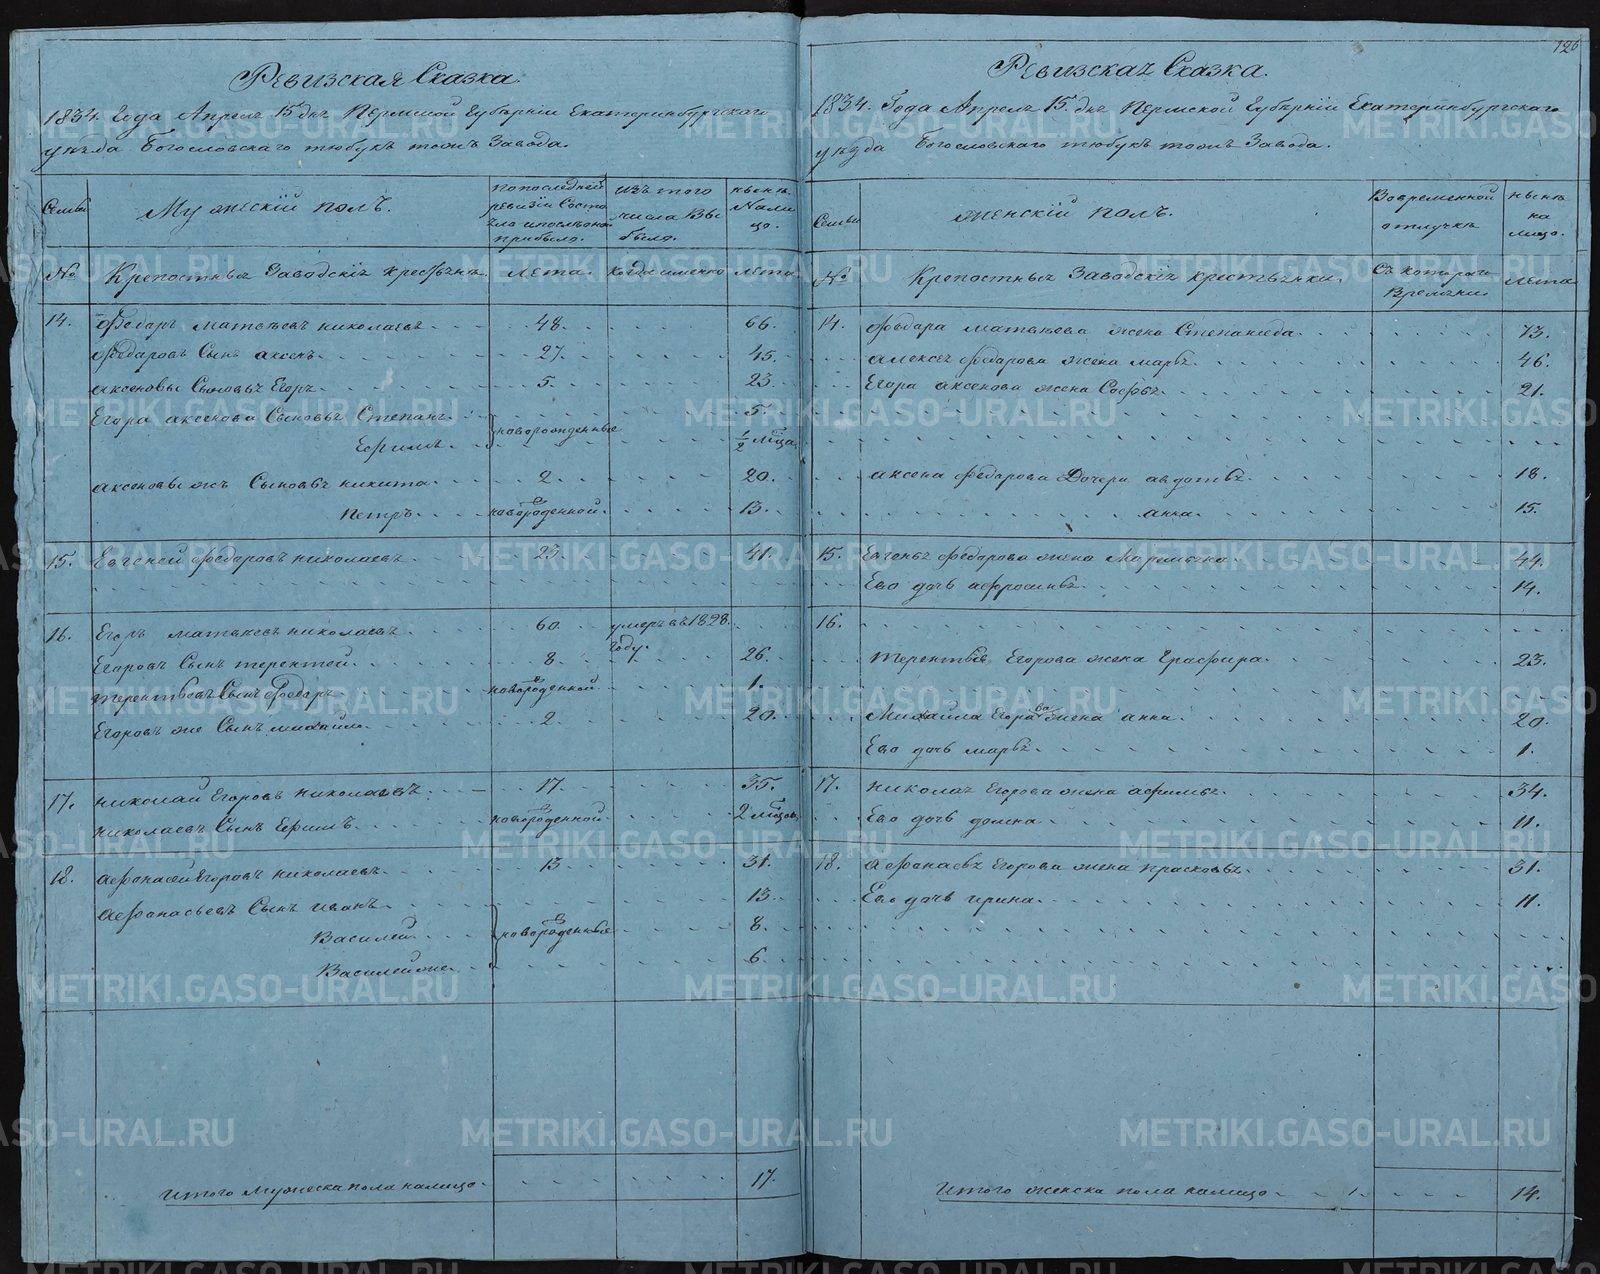 Ревизская Сказка.
1834. Года Апреля 15 дня Пермской Губернiи Екатеринбургскаго
уезда Богословскаго тюбукъ тожъ Завода.
Семьи
Мужескiй полъ.
попоследней ревизiи Состояло ипослеоной прибыло.
изъ того числа Выбыло.
ныне Налицо.
№
Крепостныя Заводскiя крестьяне.
лета.
когда именно
лета.
14. Федаръ матвеевъ николаевъ 48. 66.
Федаровъ Сынъ аксенъ 27. 45.
аксеновы Сыновья Егоръ 5. 23.
Егора аксенова Сыновья Степанъ 5.
новорожденные
Ефимъ ½ м̃ца
аксеновы жъ Сыновья никита 2. 20.
Петръ новороденной. 13.
15. Евгеней федаровъ николаевъ 23. 41.
16. Егоръ матвеевъ николаевъ 60. умеръ въ 1828. году.
Егоровъ Сынъ терентей 8. 26.
терентьевъ Сынъ Федаръ новороденной 1.
Егоровъ же Сынъ михайло 2. 20.
17. николай Егоровъ николаевъ 17. 35.
николаевъ Сынъ Ефимъ новороденной 2 м̃цов
18. афонасей Егоровъ николаевъ 13. 31.
афонасьевъ Сынъ иванъ 13.
Василей новороденные 8.
Василей же 6.
Итого Мужеска пола налицо 17.
126
Ревизская Сказка.
1834. Года Апреля 15 дня Пермской Губернiи Екатеринбургскаго
уезда Богословскаго тюбукъ тожъ Завода.
Семьи
женскiй полъ.
Вовременной отлучке
ныне на лицо.
№
Крепостныя Заводскiя крестьянки.
Съ котораго Времени
лета.
14. Федара матвеева жена Степанида 73.
алексея федарова жена марья 46.
Егора аксенова жена Софья 21.
аксена федарова Дочери авдотья 18.
анна 15.
15. Евгенья федарова жена 44.
Ево дочь афросинья 14.
16.
терентья Егорова жена Грасфира 23.
Михайла Егорова жена анна 20.
Ево дочь марья 1.
17. Николая Егорова жена афимья 34.
Ево дочь домна 11.
18. афонасья Егорова жена прасковья 31.
Ево дочь ирина 11.
Итого женска пола налицо 14.
METRIKI.GASO-URAL.RU